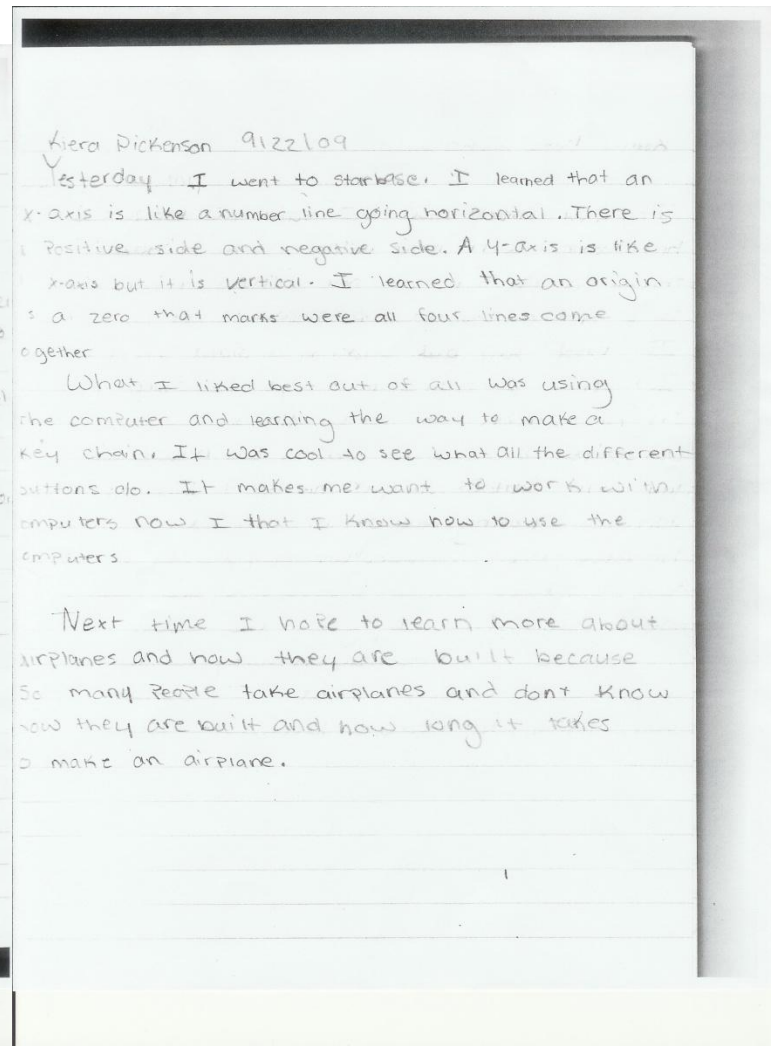 Kiera Dickenson 9/22/09
Yesterday I went to starbase. I learned that an
x-axis is like a number line going horizontal. There is
Positive side and negative side. A y-axis is like
x-axis but it is vertical. I learned that an origin
s a zero that marks were all four lines come
ogether
What I liked best out of all was using
the computer and learning the way to make a
key chain. It was cool to see what all the different
buttons do. It makes me want to work with
omputers now I that I know how to use the
omputers
Next time I hope to learn more about
airplanes and how they are built because
So many People take airplanes and dont know
how they are built and how long it takes
o make an airplane.